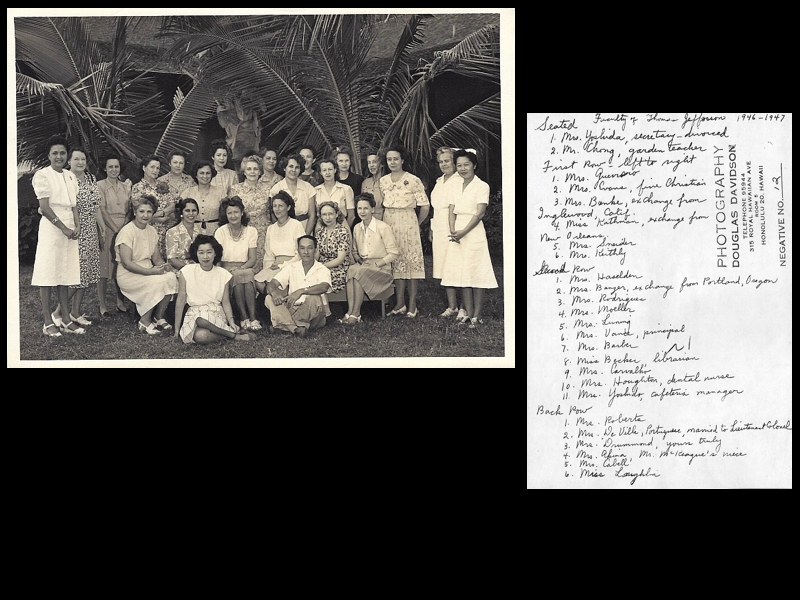 Seated Faculty of Thomas Jefferson 1946-1947
1. Mrs. Yoshida, secretary - divorced
2. Mr. Chong, garden teacher
First Row, left to right
1. Mrs. Guerrero
2. Mrs. Crane, fine Christian
3. Mrs. Banke, exchange from
Inglewood, Calif.
4. Miss Kathman, exchange from
New Orleans
5. Mrs. Snider
6. Mrs. Keithly
Second Row
1. Mrs. Haselden
2. Mrs. Banger, exchange from Portland, Oregon
3. Mrs. Rodrigues
4. Mrs. Moeller
5. Mrs. Luning
6. Mrs. Vance, principal
7. Mrs. Barber
8. Miss Becker, librarian
9. Mrs. Carvalho
10. Mrs. Houghton, dental nurse
11. Mrs. Yoshida, cafeteria manager
Back Row
1. Mrs. Roberts
2. Mrs. De Ville, Portuguese, married to Lieutenant Colonel
3. Mrs. Drummond, yours truly
4. Mrs. Mr. McKeague's niece
5. Mrs. Cabell
6. Miss Loughlin
PHOTOGRAPHY
DOUGLAS DAVIDSON
TELEPHONE 95944
315 ROYAL HAWAIIAN AVE
ROOM 5
HONOLULU 20, HAWAII
NEGATIVE NO. 12